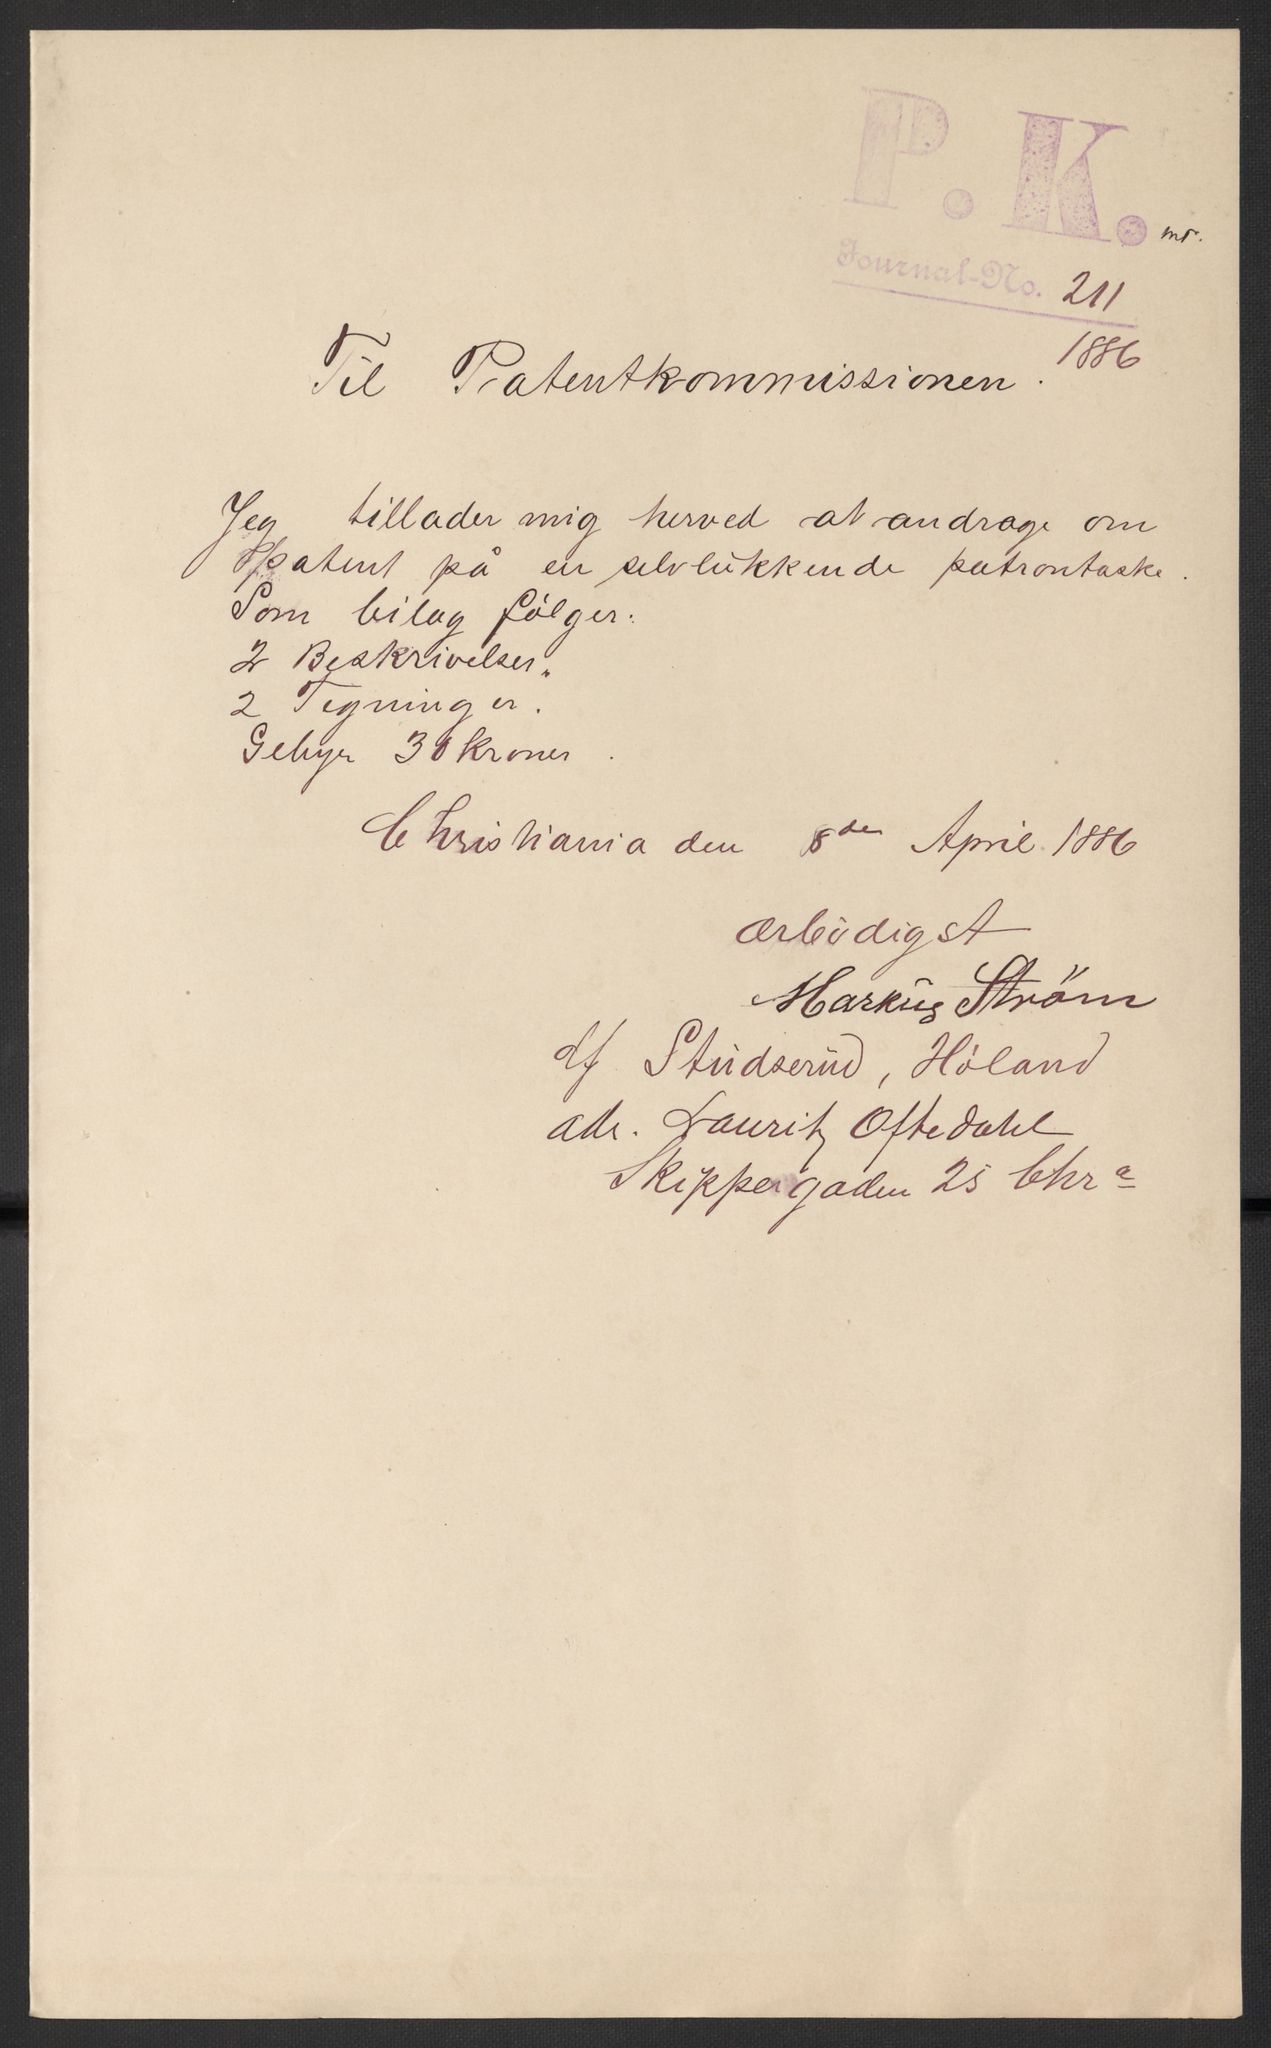 P. K.
Journal-No. 211
1886
Til Patentkommissionen.
Jeg tillader mig herved at andrage om
patent på en selvlukkende patrontaske.
Som bilag følger:
2 Beskrivelser.
2 Tegninger.
Gebyr 30 kroner.
Christiania den 8de April 1886
ærbødigst
Markus Ström
Studserud, Høland
adr. Lauritz Oftedahl
Skippergaden 25 Chra